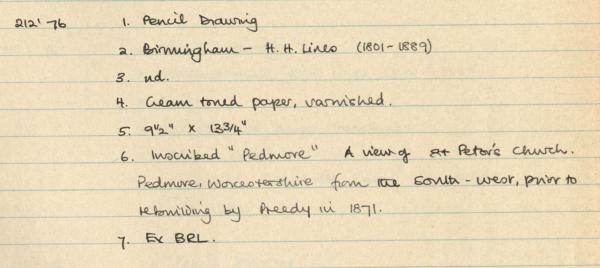 212' 76
1. Pencil Drawing
2. Birmingham - H. H. Lines (1801-1889)
3. nd.
4. Cream toned paper, varnished.
5. 9½" x 13¾"
6. Inscribed "Pedmore" A view of St Peter's Church.
Pedmore, Worcestershire from the South-west, prior to
rebuilding by Preedy in 1871.
7. Ex BRL.